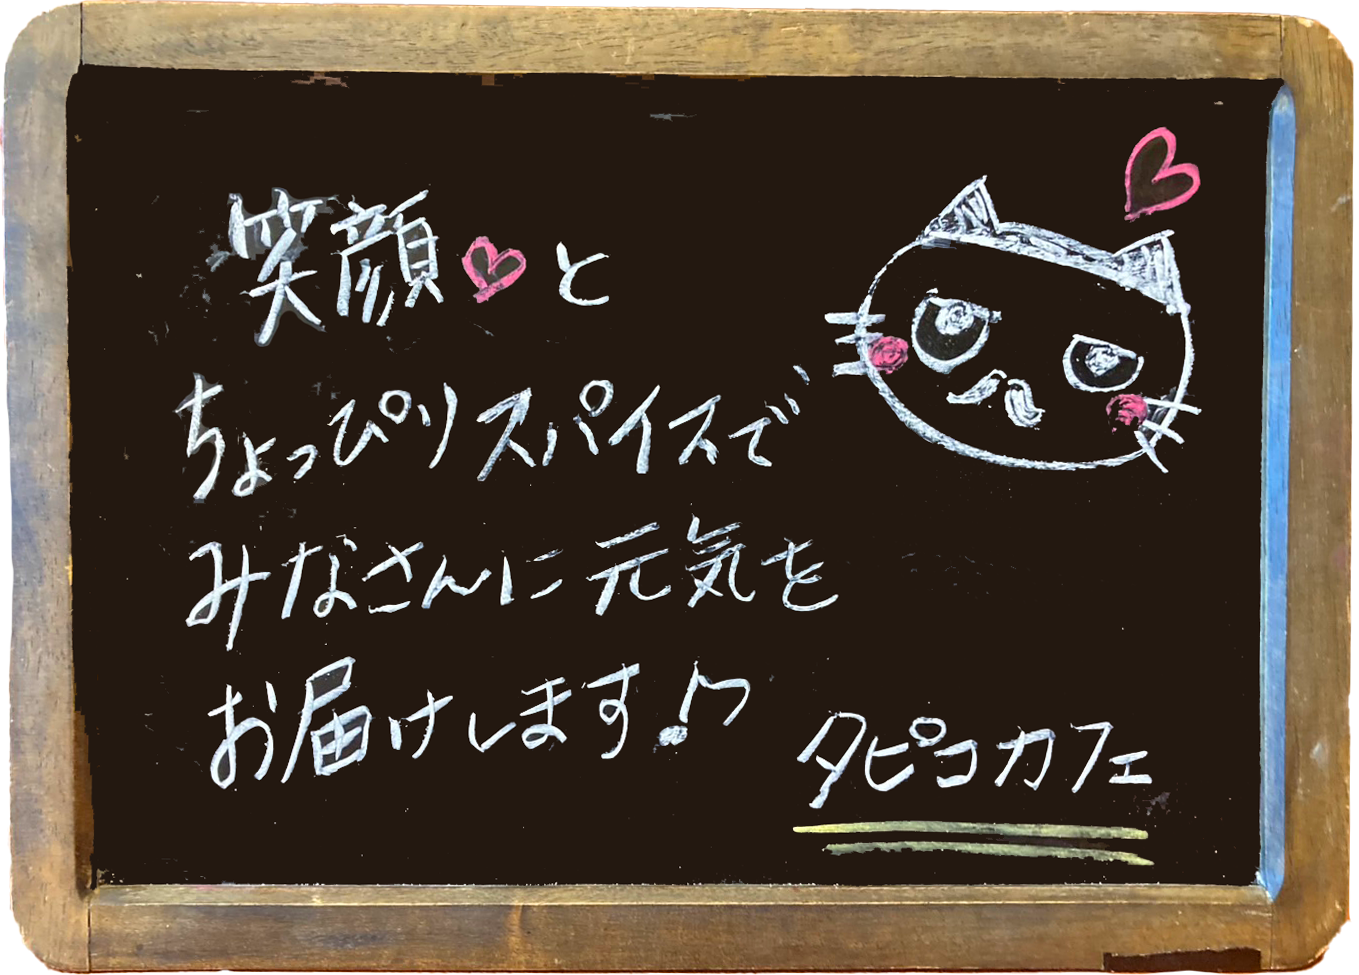 笑顔♡と
ちょっぴりスパイスで
みなさんに元気を
お届けします♪
タピコカフェ